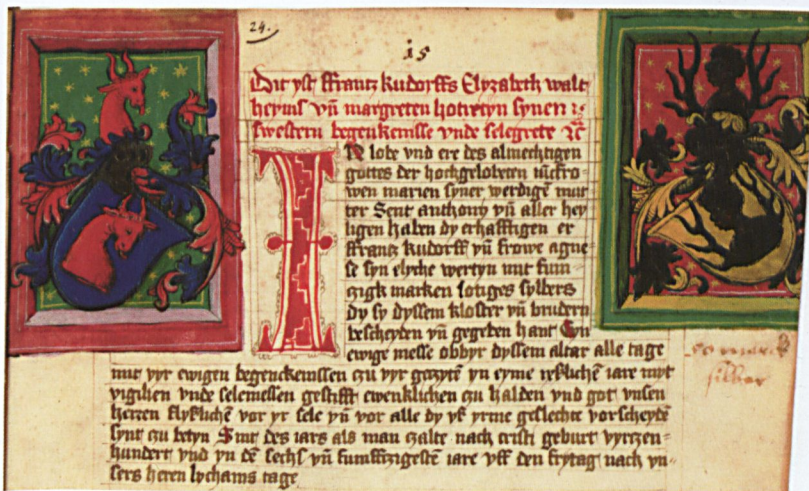 24.
15
Dit yst ffrantz kudorffs Elyzabeth walt
heyms vñ margreten hotretyn synen
swestern begenkenisse vnde selegrete
IN lobe vnd ere des almechtigen
gottes der hochgelobeten iückfro
wen marien syner werdigē mut
ter Sent anthony vñ aller hey
ligen haben dy erhafftigen er
ffrantz kudorff vñ frowe agne
se syn elyche wertyn mit fum
czigk marken lotiges sylbers
dy sy dyssem kloster vñ brudern
bescheyden vñ gegeben hant Eyn
ewige messe obbyr dyssem altar alle tage
mit vyr ewigen begenckenissen czu vyr geczytē yn eyme iczlichē iare myt
vigilien vnde selemessen gestifft ewenklichen czu halden vnd got vnsen
herren flyßlichē vor yr sele vñ vor alle dy vß yrme geslechte vorscheydē
synt czu betyn Smit des iars als man czalte nach cristi geburt vyrczen-
hundert vnd yn dē sechs vñ fumffzigestē iare vff den frytag nach vn-
sers heren lychams tage
silber